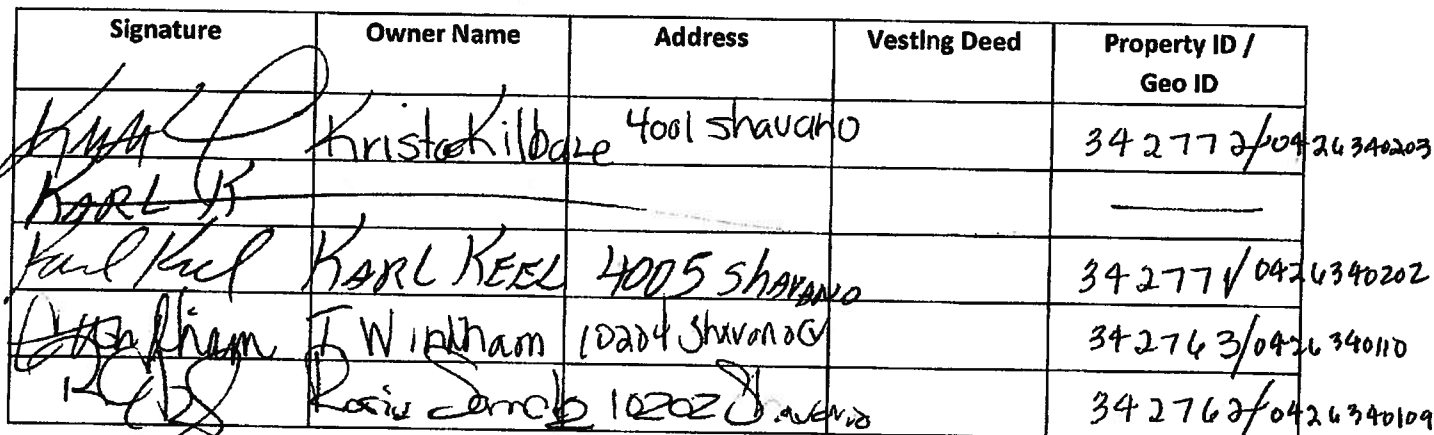 Signature Owner Name Address Vesting Deed Property ID / Geo ID
Krista Kilbane 4001 Shavano 342772/0426340203
KARL K
Karl Keel KARL KEEL 4005 Shavano 342771/0426340202
T Windham 10204 Shavano 342763/0426340110
10202 342762/0426340109